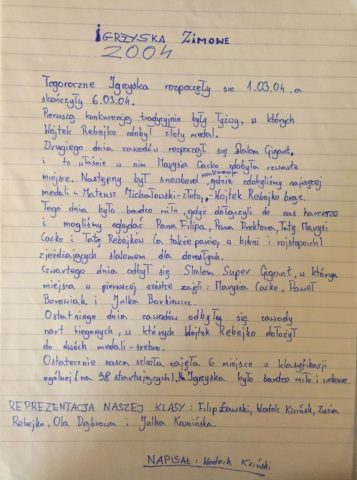 IGRZYSKA ZIMOWE
2004
Tegoroczne Igrzyska rozpoczęły się 1.03.04. a
skończyły 6.03.04.
Pierwszą konkurencją tradycyjnie były łyżwy, w których
Wojtek Rebejko zdobył złoty medal.
Drugiego dnia zawodów rozpoczął się Slalom Gigant,
i to właśnie w nim Marysia Caćko zdobyła czwarte
miejsce. Następny był snowboard konkurencja, gdzie zdobyliśmy najwięcej
medali - Mateusz Michałowski - złoto, Wojtek Rebejko brąz.
Tego dnia było bardzo miło, gdyż dołączyli do nas harcerze
i mogliśmy oglądać Pana Filipa, Pana Rektora, Tatę Marysi
Caćko i Tatę Rebejków (a także panią w bikini i rajstopach)
zjeżdżających slalomem dla dorosłych.
Czwartego dnia odbył się Slalom Super Gigant, w którym
miejsca w pierwszej szóstce zajęli: Marysia Caćko, Paweł
Borowiak i Julka Bortkiewicz.
Ostatniego dnia zawodów odbyły się zawody
nart biegowych, w których Wojtek Rebejko dołożył
do dwóch medali - srebro.
Ostatecznie nasza szkoła zajęła 6 miejsce w klasyfikacji
ogólnej (na 38 startujących). Na Igrzyskach było bardzo miło i ciekawie.
REPREZENTACJA NASZEJ KLASY: Filip Ławski, Wodzik Kiciński, Zuzia
Rebejko, Ola Dąbrowa i Julka Kamińska.
NAPISAŁ: Wodzik Kiciński